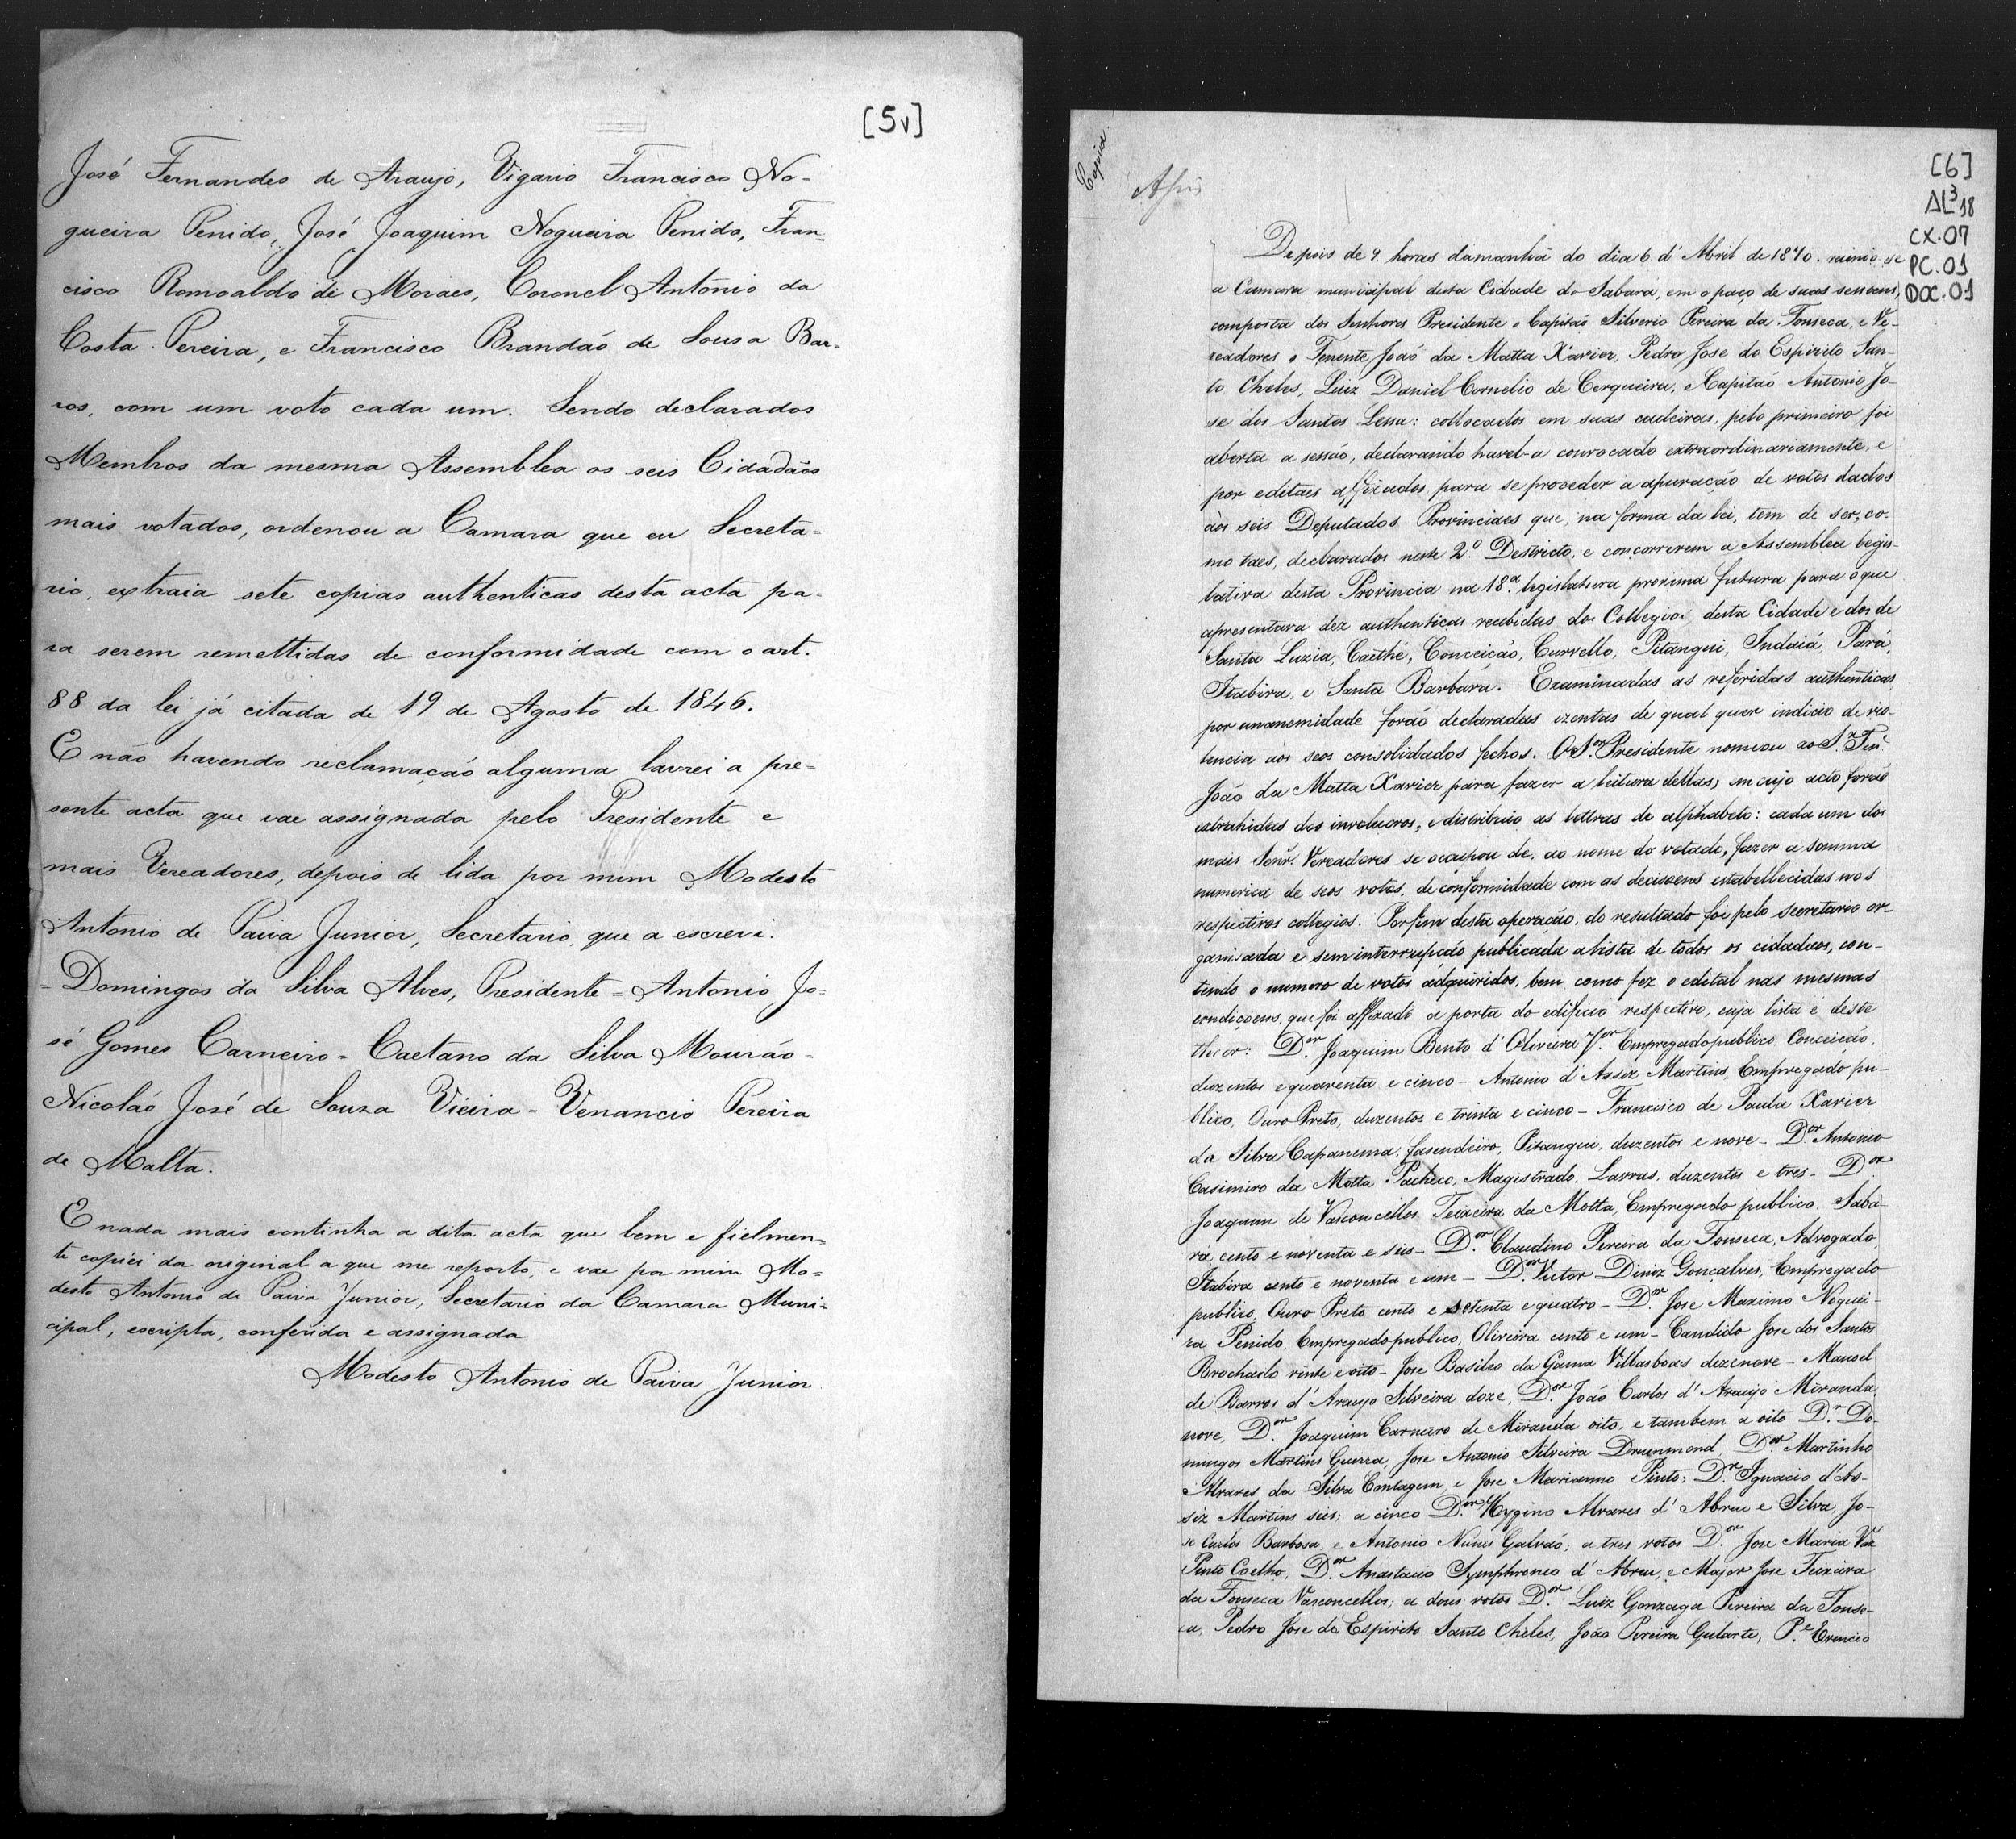 [5v]
José Fernandes de Araujo, Vigario Francisco No-
gueira Penido, José Joaquim Nogueira Penido, Fran-
cisco Romoaldo de Moraes, Coronel Antonio da
Costa Pereira, e Francisco Brandão de Sousa Bar-
ros, com um voto cada um. Sendo declarados
Membros da mesma Assemblea os seis Cidadãos
mais votados, ordenou a Camara que eu Secreta=
rio, extraia sete copias authenticas desta acta pa-
ra serem remettidas de conformidade com o art.
88 da lei já citada de 19 de Agosto de 1846.
E não havendo reclamação alguma lavrei a pre=
sente acta que vae assignada pelo Presidente e
mais Vereadores, depois de lida por mim Modesto
Antonio de Paiva Junior, Secretario, que a escrevi.
= Domingos da Silva Alves, Presidente = Antonio Jo=
sé Gomes Carneiro = Caetano da Silva Mourão =
Nicoláo José de Souza Vieira = Venancio Pereira
de Malta.
E nada mais continha a dita acta que bem e fielmen=
te copiei da original a que me reporto, e vae por mim Mo=
desto Antonio de Paiva Junior, Secretario da Camara Muni=
cipal, escripta, conferida e assignada
Modesto Antonio de Paiva Junior
Copia
[6]
AL³18
CX.07
PC.01
DOC.01
Depois de 9 horas damanhã do dia 6 d'Abril de 1870. reunio-se
a Camara municipal desta Cidade do Sabará, em o paço de suas sessoens,
composta dos Senhores Presidente o Capitão Silverio Pereira da Fonseca, e Ve-
readores o Tenente João da Matta Xavier, Pedro Jose do Espirito San-
to Cheles, Luiz Daniel Cornelio de Cerqueira, e Capitão Antonio Jo-
se dos Santos Lessa: collocados em suas cadeiras, pelo primeiro foi
aberta a sessão, declarando havel-a convocado extraordinariamente, e
por editaes affixados, para se proceder a apuração de votos dados
aos seis Deputados Provinciaes que, na forma da lei, tem de ser, co-
mo taes, declarados neste 2º Destricto, e concorrerem a Assemblea legis-
lativa desta Provincia na 18ª legislatura proxima futura para o que
apresentava dez authenticas recebidas do Collegio: desta Cidade e dos de
Santa Luzia, Caethé, Conceição, Curvello, Pitangui, Indaiá, Pará,
Itabira, e Santa Barbara. Examinadas as referidas authenticas,
por unanemidade forão declaradas izentas de qual quer indicio de vio-
lencia aos seos consolidados fechos. O Sor Presidente nomeou ao Sr Ten.e
João da Matta Xavier para fazer a leitura dellas, em cujo acto forão
extrahidas dos involucros, e distribuio as lettras do alphabeto: cada um dos
mais Senr. Vereadores se occupou de, ao nome do votado, fazer a somma
numerica de seos votos, de conformidade com as decisoens estabellecidas nos
respectivos collegios. Por fim desta operação, do resultado foi pelo secretario or-
ganisada e sem interrupção publicada a lista de todos os cidadaos, con-
tendo o numero de votos adqueridos, bem como fez o edital nas mesmas
condiçoens, que foi affixado a porta do edificio respectivo, cuja lista é deste
theor: Dor Joaquim Bento d'Oliveira Jor Empregado publico, Conceicão,
duzentos e quarenta e cinco - Antonio d'Assiz Martins, Empregado pu-
blico, Ouro Preto, duzentos e trinta e cinco - Francisco de Paula Xavier
da Silva Capanema, fasendeiro, Pitangui, duzentos e nove - Dor Antonio
Casimiro da Motta Pacheco, Magistrado, Lavras, duzentos e tres - Dor
Joaquim de Vasconcellos Teixeira da Motta, Empregado publico, Saba-
rá cento e noventa e seis - Dor Claudino Pereira da Fonseca, Advogado,
Itabira cento e noventa e um - Dor Victor Diniz Goncalves, Empregado
publico, Ouro Preto cento e setenta e quatro - Dor Jose Maximo Noguei-
ra Penido, Empregado publico, Oliveira cento e um - Candido Jose dos Santos
Brochado vinte e oito - Jose Basileo da Gama Villasboas dezenove - Manoel
de Barros d'Araujo Silveira doze, Dor João Carlos d'Araujo Miranda,
nove, Dor Joaquim Carneiro de Miranda oito, e tambem a oito Dr Do-
mingos Martins Guerra, Jose Antonio Silveira Drummond, Dor Martinho
Alvares da Silva Contagem, e Jose Marianno Pinto: Dr Ignacio d'As-
siz Martins seis; a cinco Dor Hygino Alvares d'Abreu e Silva, Jo-
se Carlos Barbosa, e Antonio Nunes Galvão; a tres votos Dor Jose Maria Vaz
Pinto Coelho, Dor Anastacio Symphronio d'Abreu, e Major Jose Teixeira
da Fonseca Vasconcellos; a dous votos Dor Luiz Gonzaga Pereira da Fonse-
ca, Pedro Jose do Espirito Santo Cheles, João Pereira Gularte, Pe